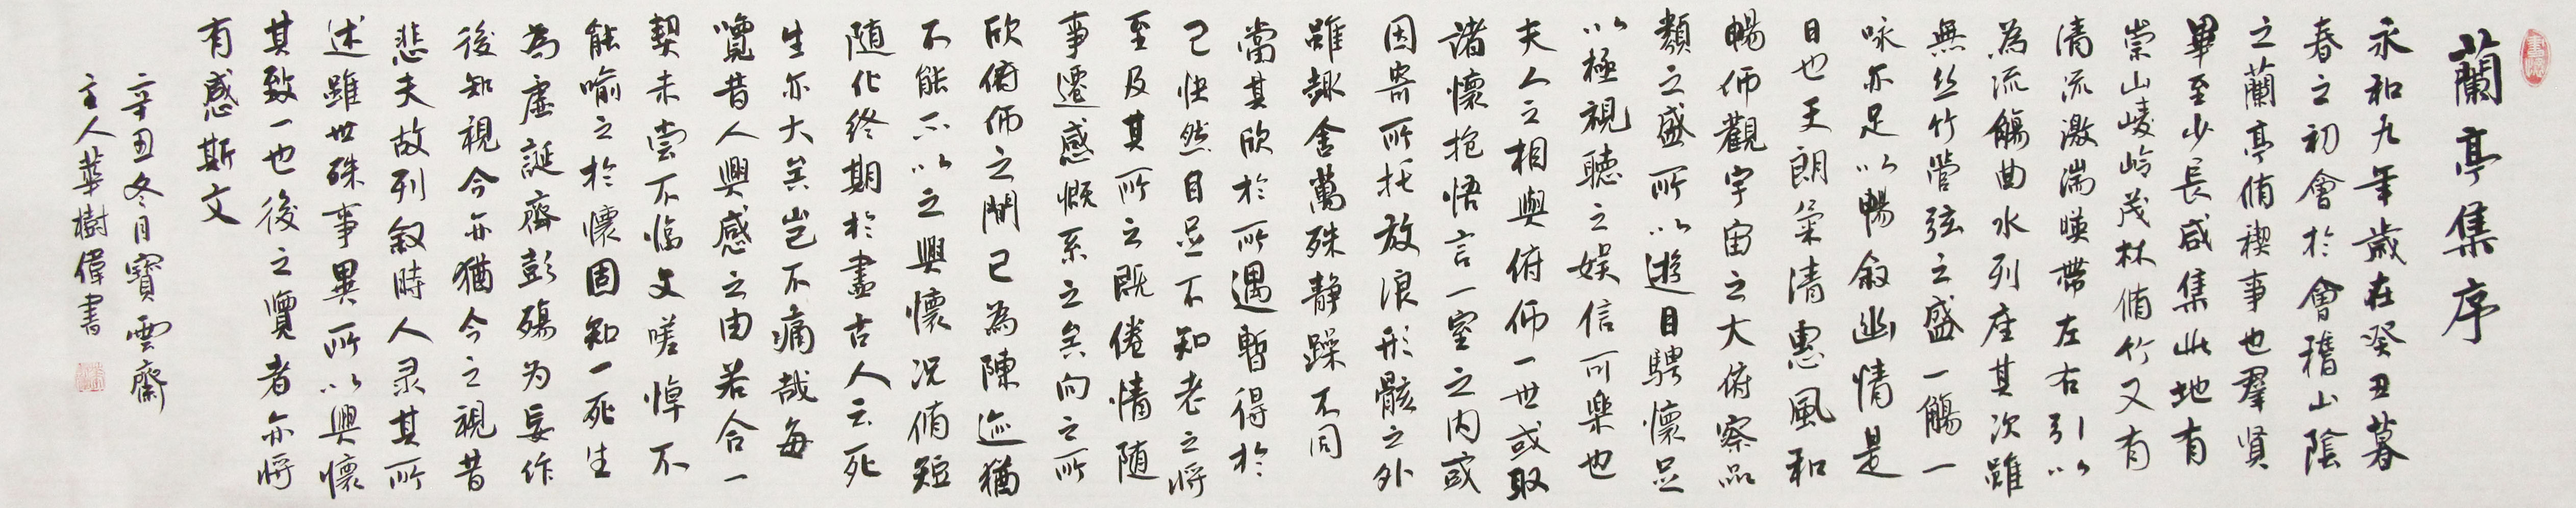 蘭亭集序
永和九年歲在癸丑暮
春之初會於會稽山陰
之蘭亭脩禊事也羣賢
畢至少長咸集此地有
崇山崚岭茂林脩竹又有
清流激湍暎帶左右引以
為流觴曲水列座其次雖
無丝竹管弦之盛一觴一
咏亦足以暢叙幽情是
日也天朗氣清惠風和
暢仰觀宇宙之大俯察品
類之盛所以遊目騁懷足
以極視聽之娱信可樂也
夫人之相與俯仰一世或取
諸懷抱悟言一室之内或
因寄所托放浪形骸之外
雖趣舍萬殊静躁不同
當其欣於所遇暫得於
己快然自足不知老之將
至及其所之既倦情随
事遷感慨系之矣向之所
欣俯仰之間已為陳迹猶
不能不以之興懷况脩短
随化终期於盡古人云死
生亦大矣岂不痛哉每
覽昔人興感之由若合一
契未尝不临文嗟悼不
能喻之於懷固知一死生
為虚誕齊彭殤为妄作
後知視今亦猶今之視昔
悲夫故列叙時人录其所
述雖世殊事異所以興懷
其致一也後之覽者亦將
有感斯文
辛丑冬月寶雲齋
主人華樹偉書